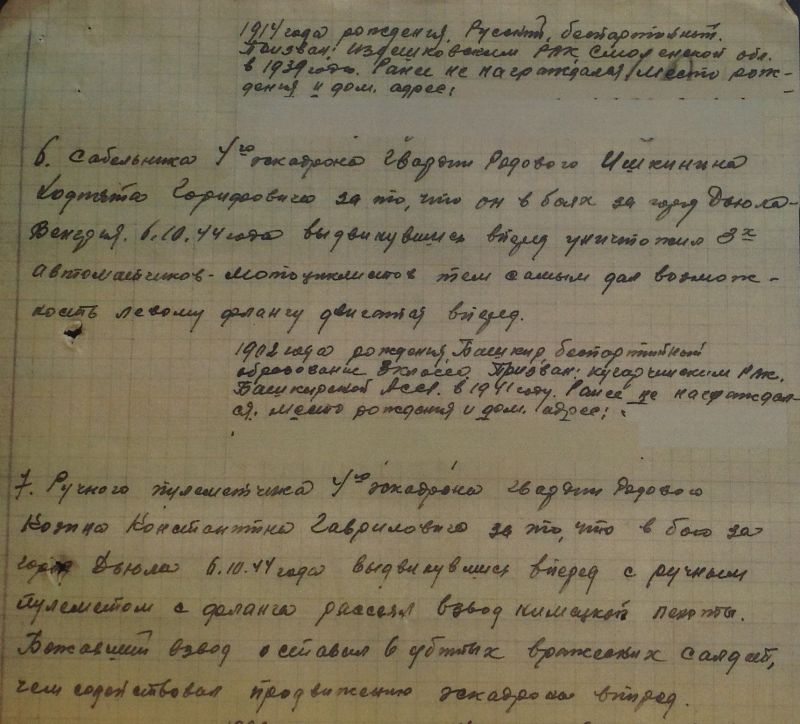 1914 года рождения, Русский, беспартийный.
Призван: Издешковским РВК Смоленской обл.
в 1939 году. Ранее не награждался, Место рож-
дения и дом. адрес:
6. Сабельника 4го эскадрона Гвардии Рядового Ишкинина
Гарифовича за то, что он в боях за город Дьюла-
Венгрия. 6.10.44 года выдвинувшись вперед уничтожил 3х
автоматчиков-мотоциклистов тем самым дал возмож-
ность левому флангу двигатся вперед.
1902 года рождения, Башкир, беспартийный
образование 3 класса, Призван: Кугарчинским РВК.
Башкирской АССР. в 1941 году. Ранее не награждал-
ся. место рождения и дом. адрес:
7. Ручного пулеметчика 4го эскадрона Гвардии Рядового
Константина Гавриловича за то, что в бою за
город Дьюла 6.10.44 года выдвинувшись вперед с ручным
пулеметом с фланга рассеял взвод нимецкой пехоты.
Бежавший взвод оставил 6 убитых вражеских салдат,
чем содействовал продвижению эскадрона вперед.